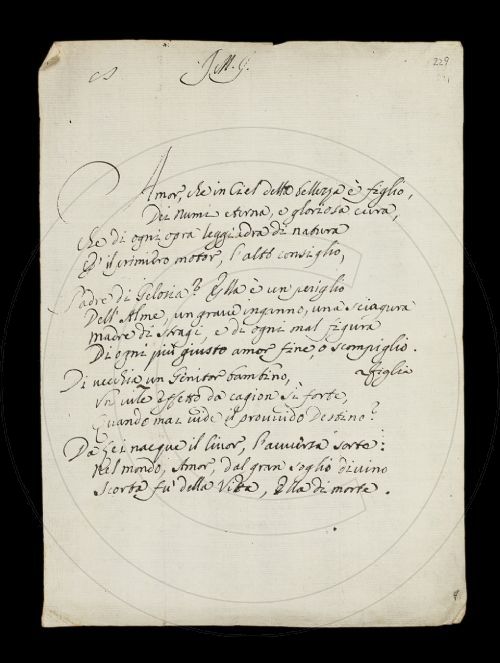 J. M. G.
229
Amor, che in Ciel della bellezza è figlio,
Dei Numi eterna, e gloriosa cura,
Che di ogni opra leggiadra di natura
È il primiero motor, l'alto consiglio,
Padre di Gelosia? Ella è un periglio
Dell'Alme, un grave inganno, una sciagura
Madre di Stragi, e di ogni mal figura
Di ogni più giusto amor fine, o scompiglio.
Di vecchia un Genitor bambino, figlia
Un vile effetto da cagion sì forte,
Quando mai vide il provvido Destino?
Da Lei nacque il livor, l'avversa sorte:
Nel mondo, Amor, dal gran soglio divino
Scorta fu della Vita, Ella di morte.